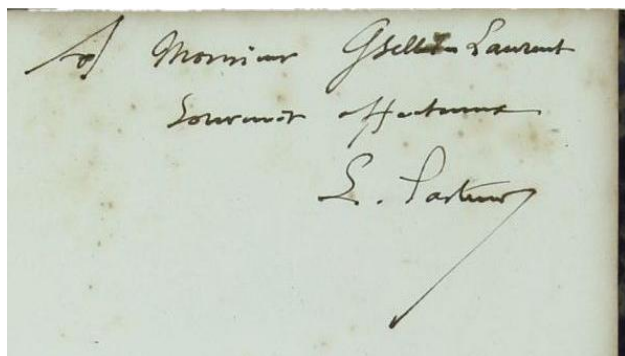 à Monsieur Gsell Laurent
Souvenir affectueux
L. Pasteur